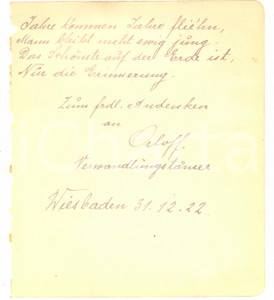 Jahre kommen Jahre flieh'n,
Mann bleibt nicht ewig jung.
Das Schönste auf der Erde ist,
Nur die Erinnerung.
Zum frdl. Andenken
an
Orloff.
Verwandlungstänzer
Wiesbaden 31.12.22.